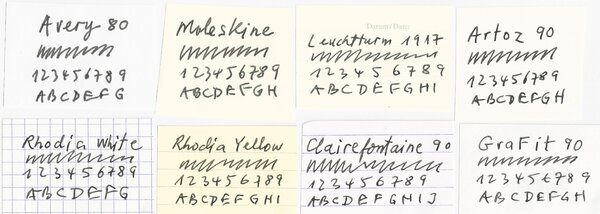 Avery 80
123456789
ABCDEFG
Moleskine
123456789
ABCDEFGH
Datum / Date:
Leuchtturm 1917
123456789
ABCDEFGHI
Artoz 90
123456789
ABCDEFGH
Rhodia white
123456789
ABCDEFG
Rhodia Yellow
123456789
ABCDEFGHI
Clairefontaine 90
123456789
ABCDEFGHIJ
GraFit 90
123456789
ABCDEFGH